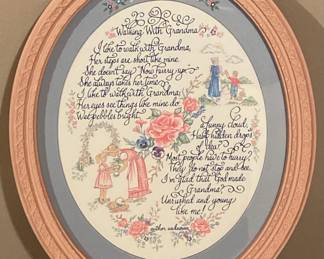 Walking With Grandma
I like to walk with Grandma,
Her steps are short like mine.
She doesn't say "Now hurry up"
She always takes her time.
I like to walk with Grandma,
Her eyes see things like mine do.
Wee pebbles bright,
a funny cloud,
Half hidden drops
of dew.
Most people have to hurry,
They do not stop and see.
I'm glad that God made
Grandma
Unrushed and young
like me!
author unknown